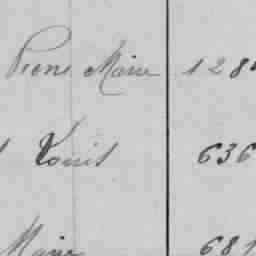 Pierre Marie 128
Louis 636
Marie 681